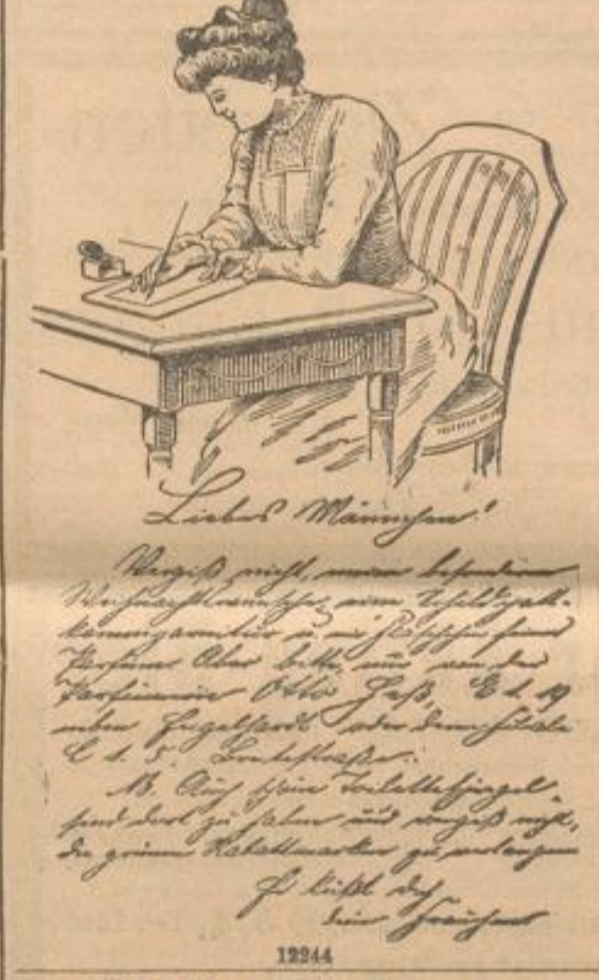 Liebes Männchen!
Vergiß nicht, meine besonderen
Weihnachtswünsche, eine Schildpatt-
kammgarnitur u. ein Fläschchen feines
Parfüm. Aber bitte, nur von der
Parfümerie Otto Heß, E 1. 19
neben Engelhardt oder dem Filiale
C 1. 5. Breitestraße.
NB. Auch schöne Toilettespiegel
sind dort zu haben und vergeß nicht,
die grünen Rabattmarken zu verlangen
Es küßt Dich
dein Frauchen
12244